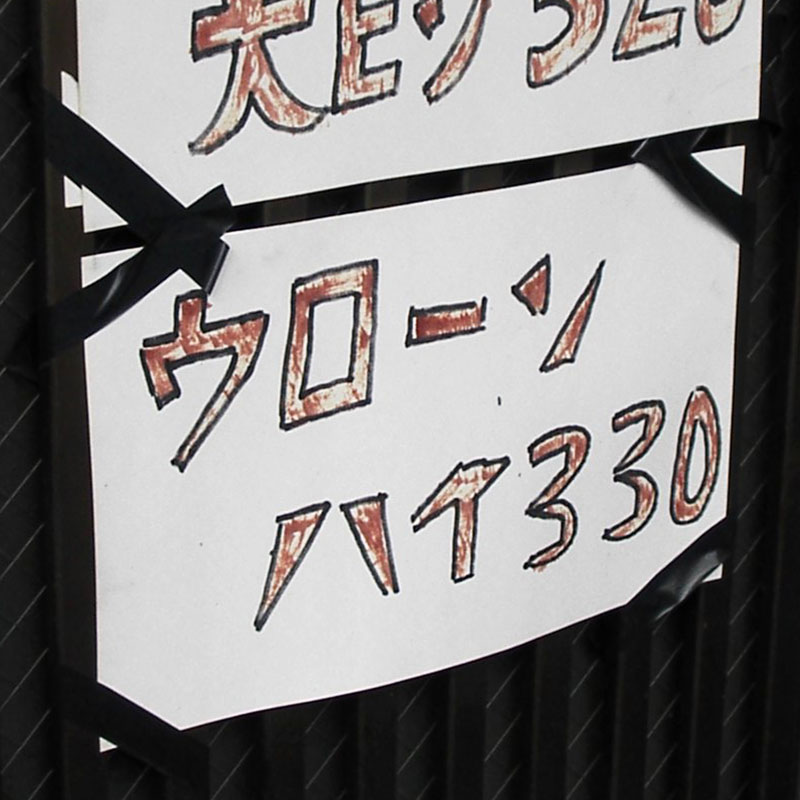 大
ウローン
ハイ330